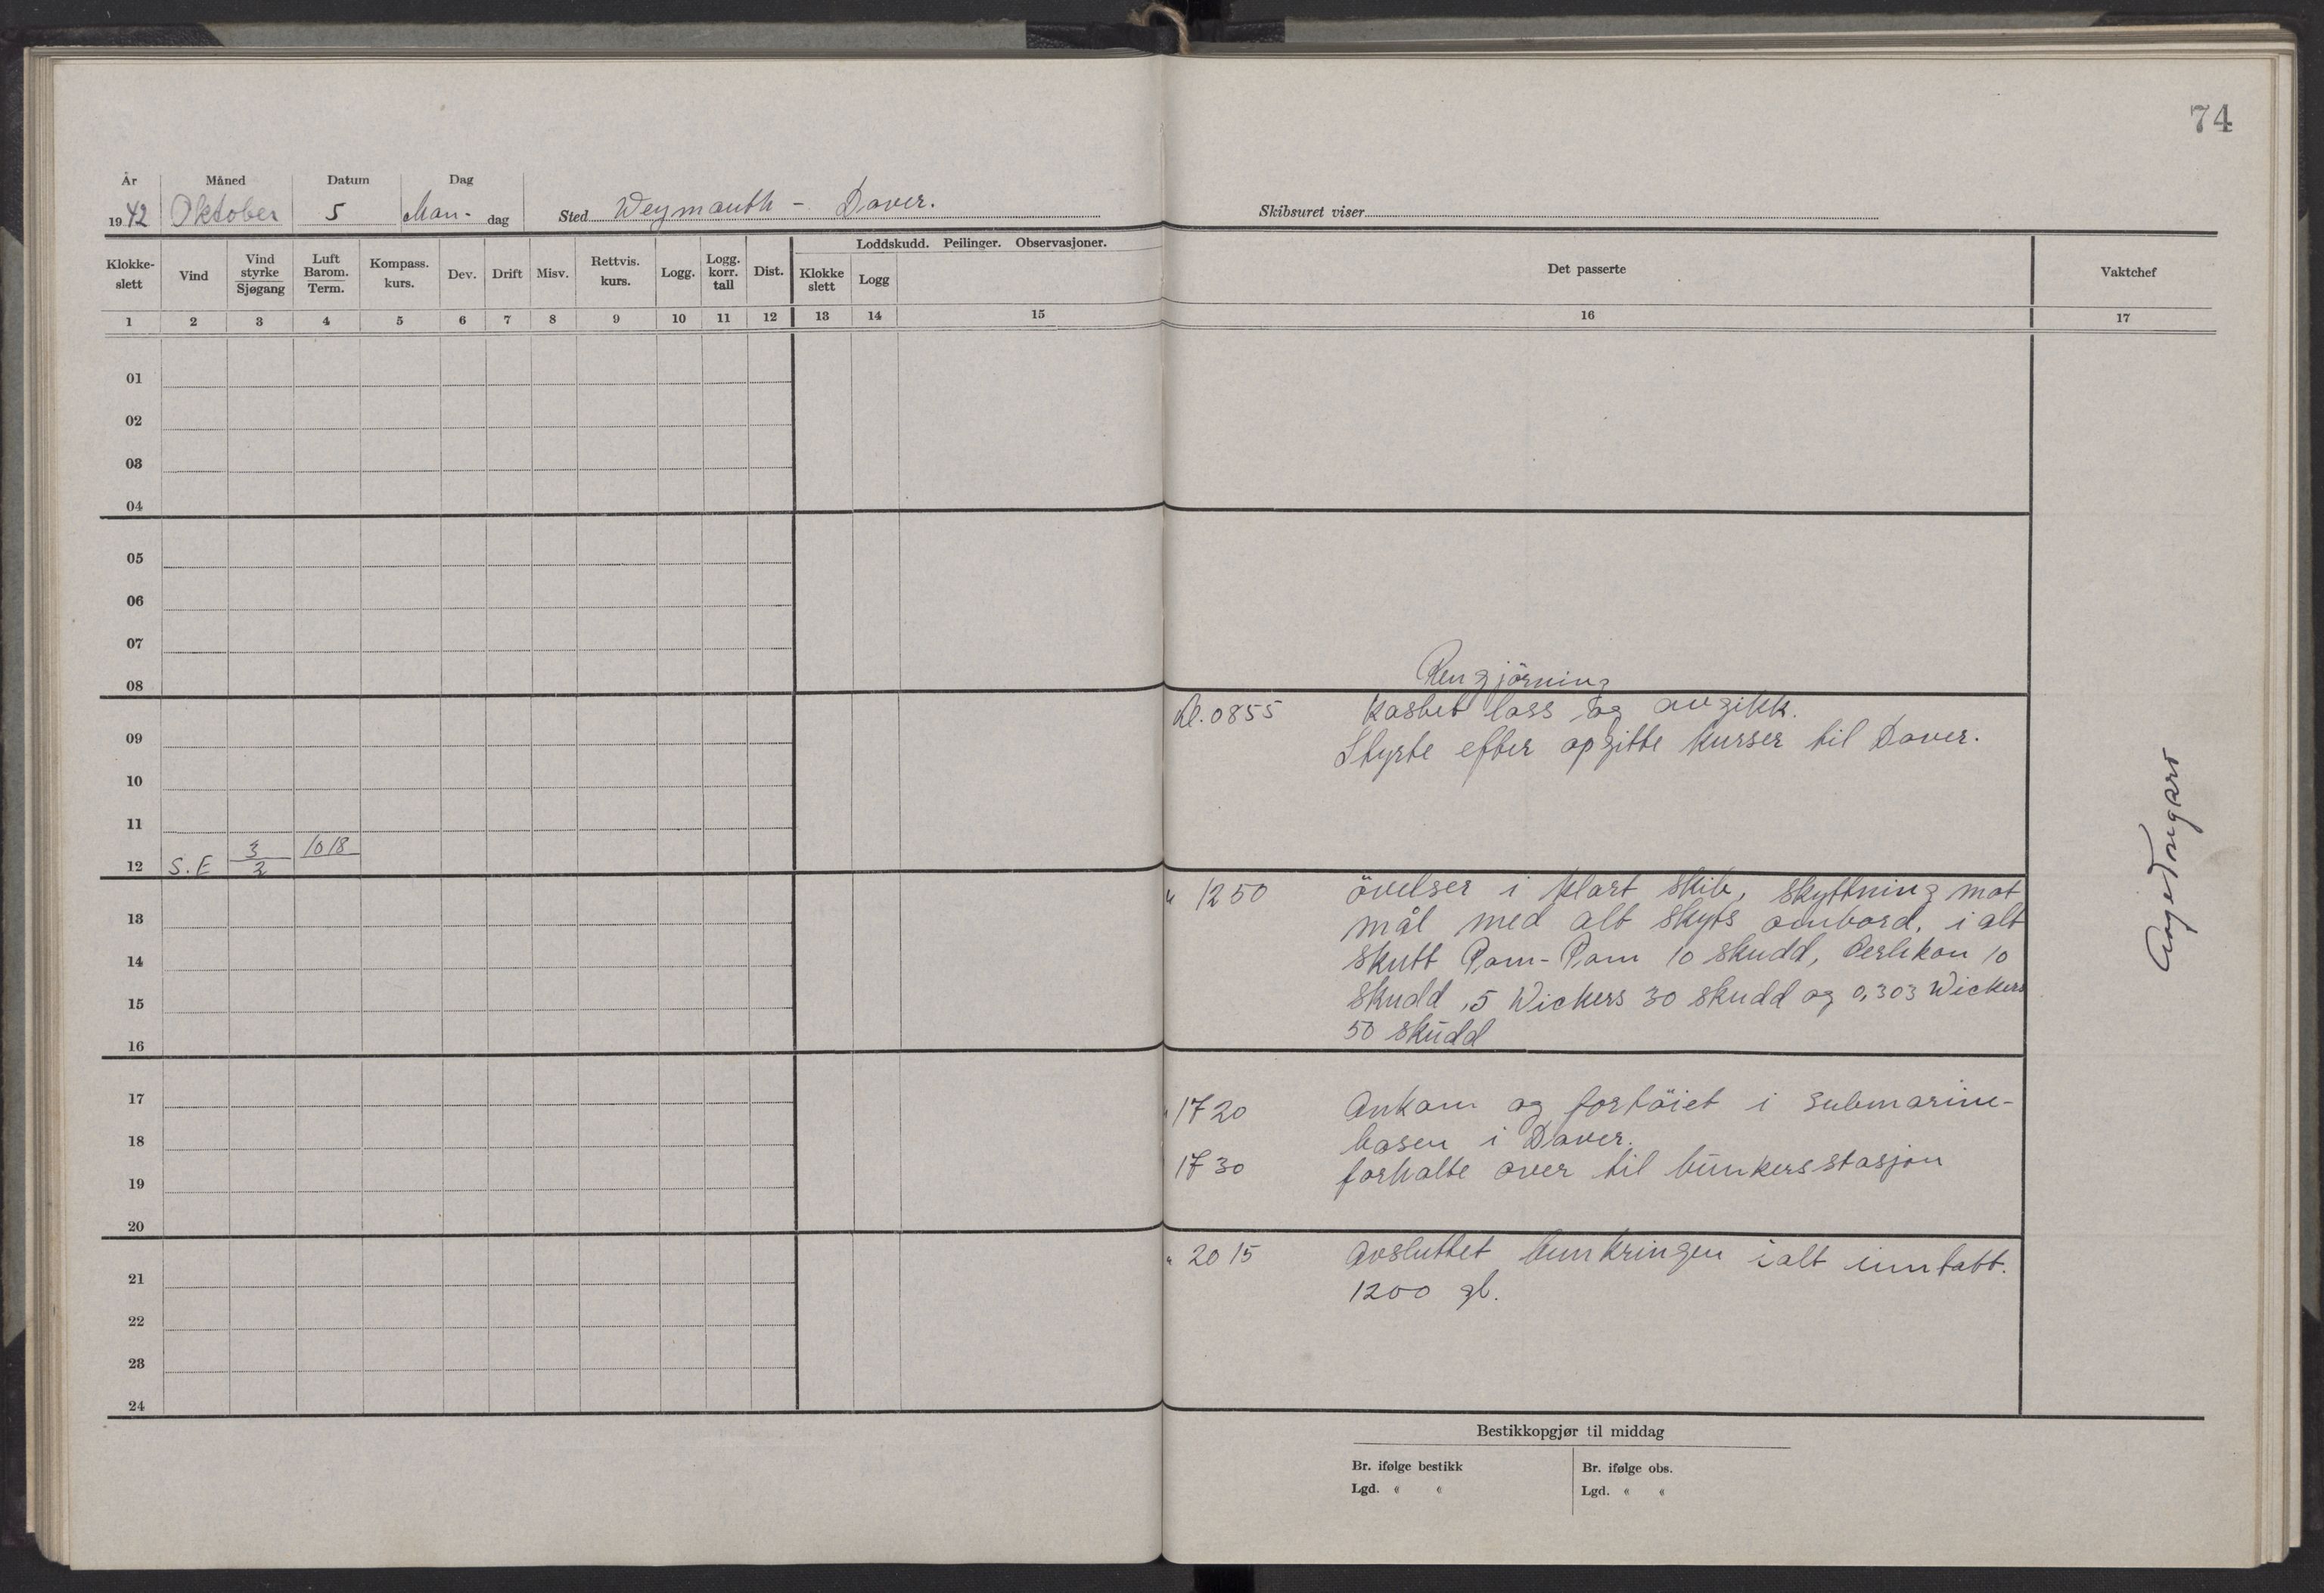 74
År Måned Datum Dag
1942 Oktober 5 Man- dag Sted Weymouth - Dover. Skibsuret viser
Klokke-slett Vind Vind styrke Sjøgang Luft Barom. Term. Kompass. kurs. Dev. Drift Misv. Rettvis. kurs. Logg. Logg. korr. tall Dist. Loddskudd. Peilinger. Observasjoner. Klokke slett Logg Det passerte Vaktchef
1 2 3 4 5 6 7 8 9 10 11 12 13 14 15 16 17
01
02
03
04
05
06
07
08 Rengjörning
Kl. 0855 Kastet loss og avgikk.
09 Styrte efter opgitte kurser til Dover.
10
11
12 S.E 3/2 1018
" 1250 övelser i klart skib, skyttning mot
13 mål med alt skyts ombord, i alt
14 skutt Pom-Pom 10 skudd, Oerlikon 10
15 skudd .5 Wickers 30 skudd og 0,303 Wickers
16 50 skudd
17 " 1720 Ankom og fortöiet i submarine-
18 basen i Dover.
1730 forhalte over til bunkersstasjon
19
20
" 2015 Avsluttet bunkringen ialt inntatt.
21 1200 gl.
22
23
24
Bestikkopgjør til middag
Br. ifølge bestikk Br. ifølge obs.
Lgd. « « Lgd. « «